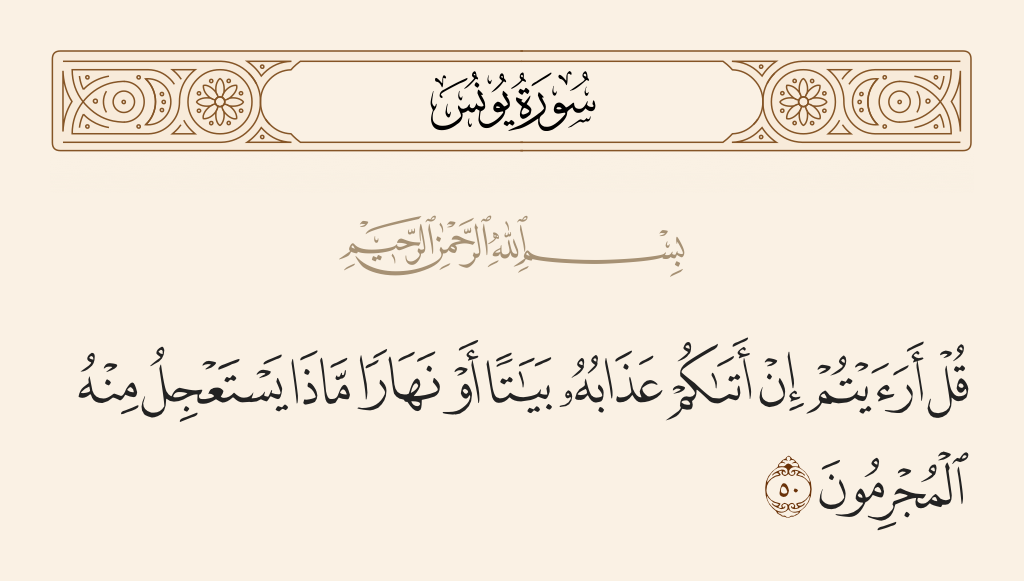 سُورَةُ يُونُسَ
بِسْمِ ٱللَّهِ ٱلرَّحْمَٰنِ ٱلرَّحِيمِ
قُلْ أَرَءَيْتُمْ إِنْ أَتَىٰكُمْ عَذَابُهُۥ بَيَٰتًا أَوْ نَهَارًا مَّاذَا يَسْتَعْجِلُ مِنْهُ
ٱلْمُجْرِمُونَ ٥٠